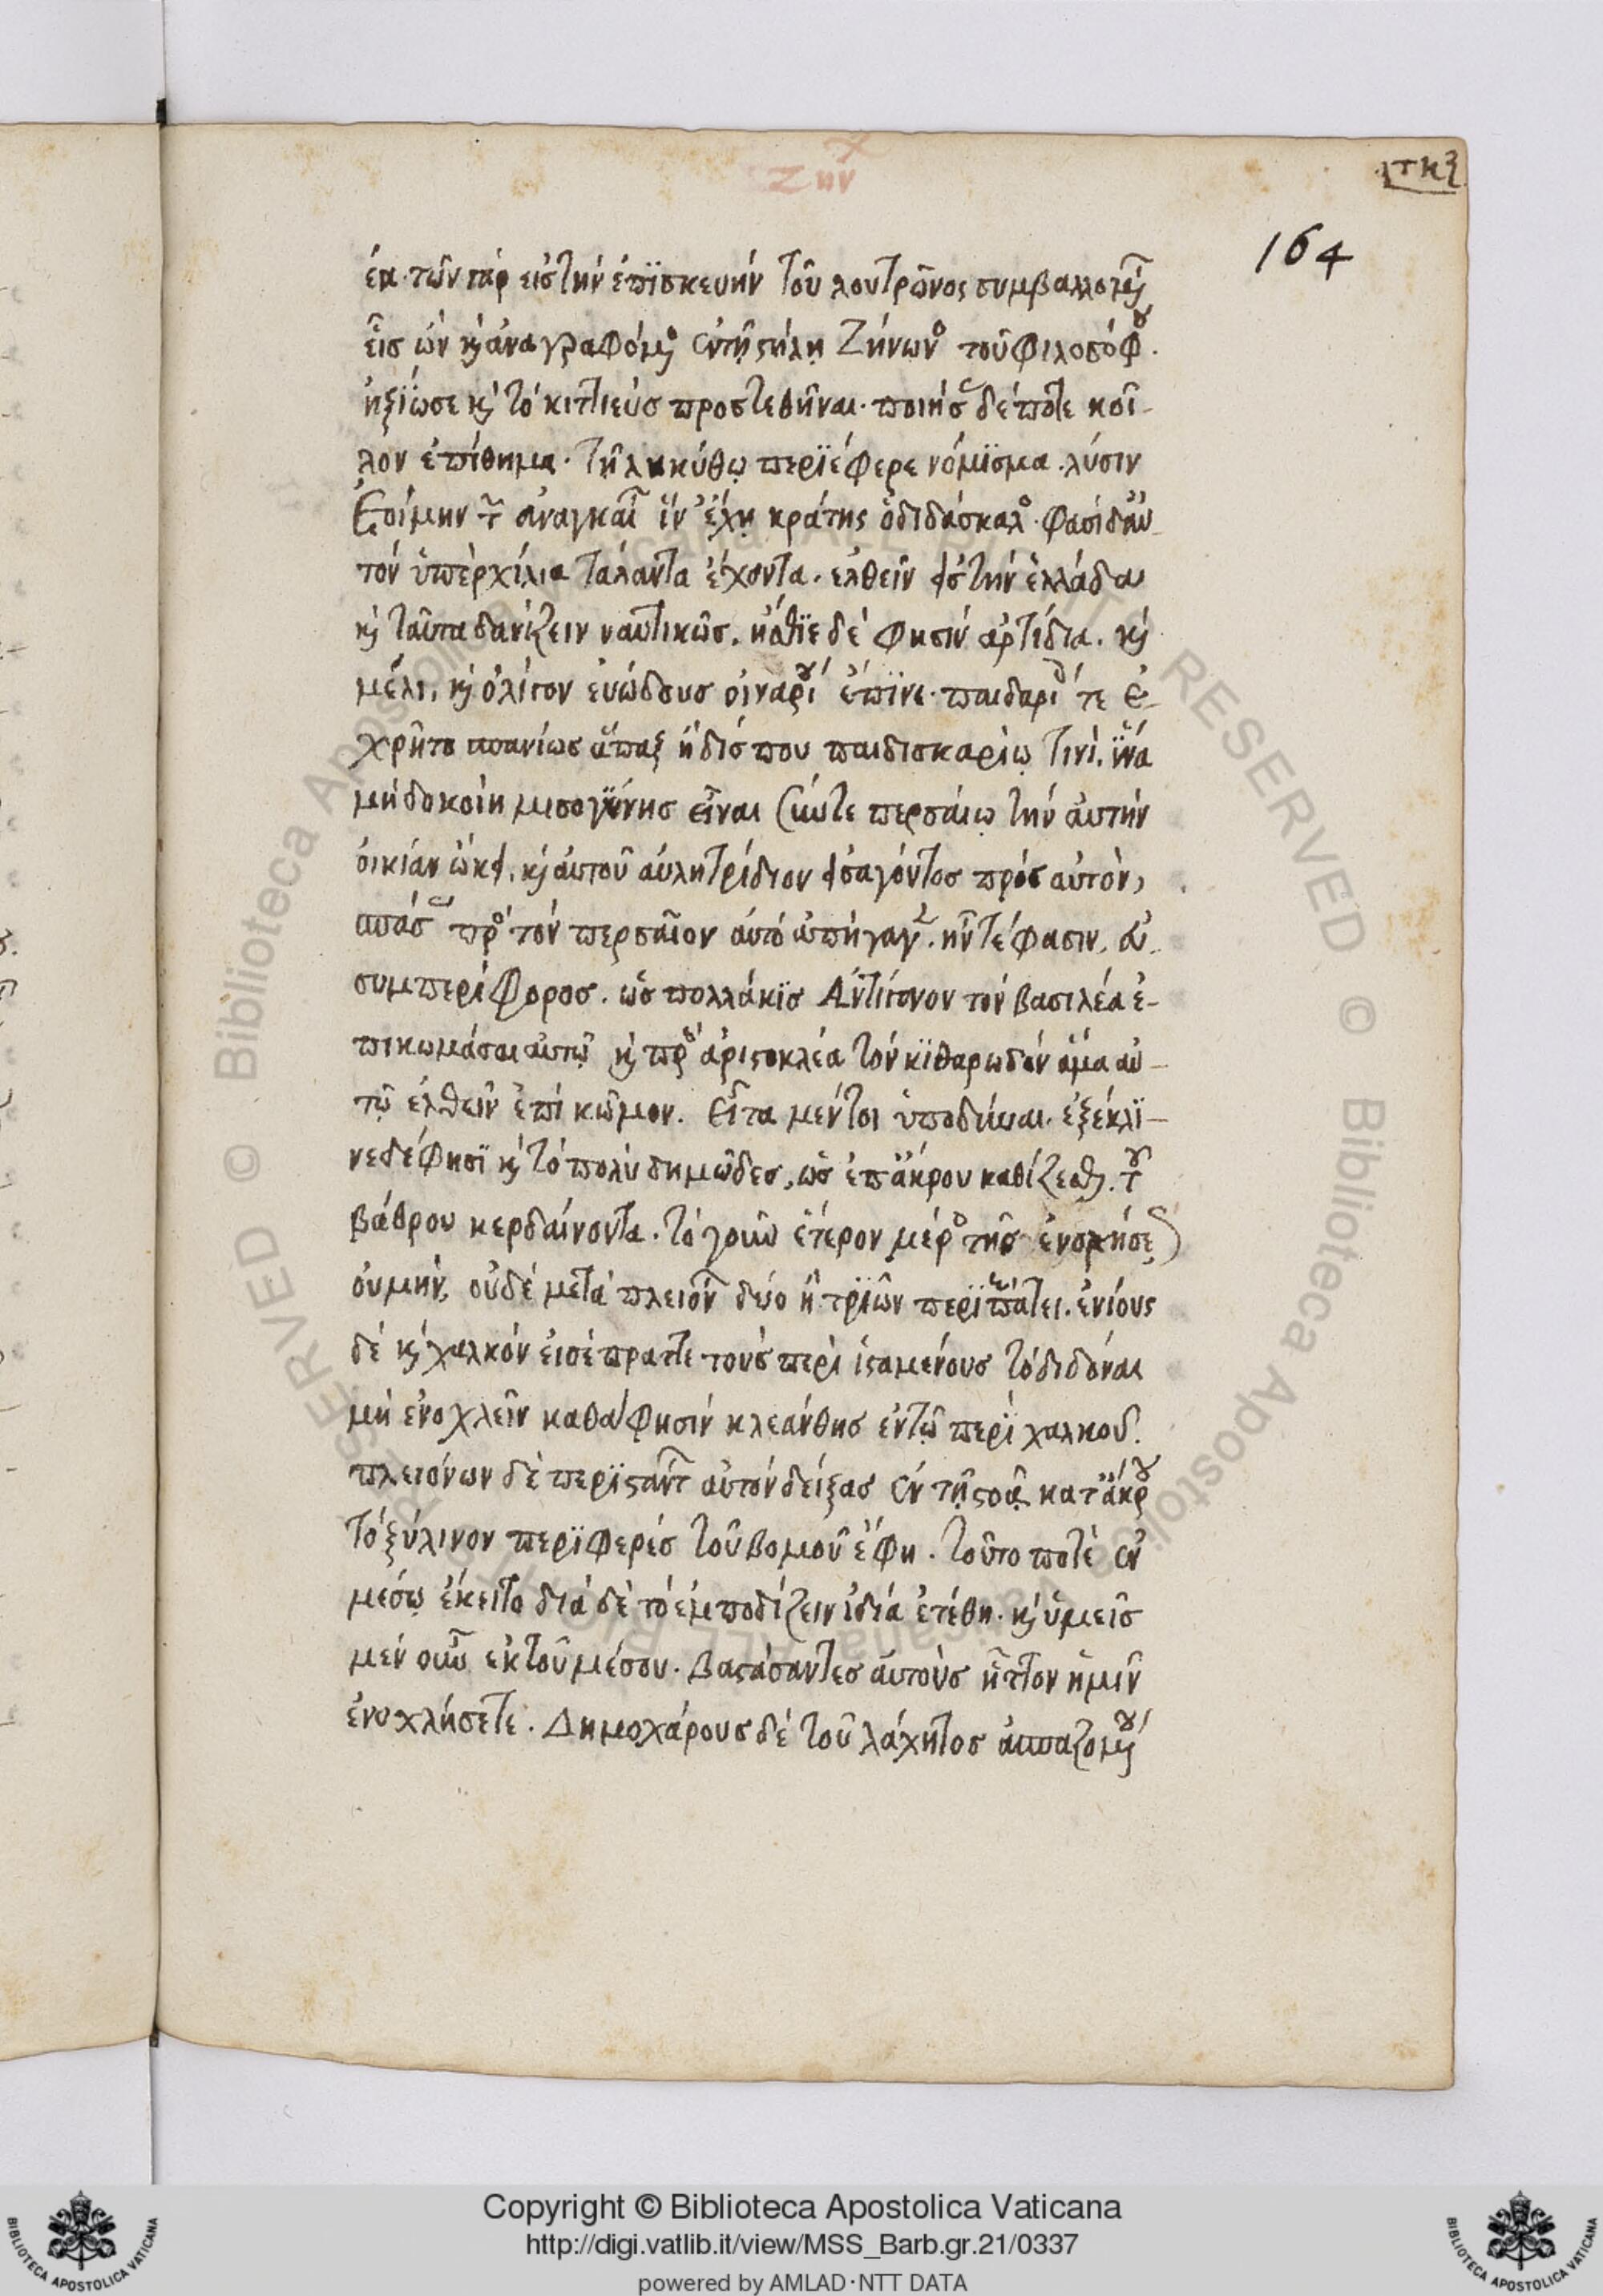 Ζήν
τκζ
164
έα· τῶν γάρ εἰς τήν ἐπϊσκευήν τοῦ λουτρῶνος συμβαλλομ
εἷς ὤν κ ἀναγραφόμ ἐν τῇ στήλῃ Ζήνων τοῦ φιλοσόφου.
ἠξίωσε κ τό κιτιεύς προστεθῆναι. ποιήσ δέ ποτε κοῖ-
λον ἐπίθημα. τῇ ληκύθῳ περϊέφερε νόμϊσμα. λύσιν
ἑτοίμην τ ἀναγκαί ἵν ἔχῃ κράτης ὁ διδάσκαλο. φασί δ αυ-
τόν ὑπὲρ χίλια τάλαντα ἔχοντα. ἐλθεῖν εἰς τήν ἑλλάδα
κ ταῦτα δανίζειν ναυτικῶς. ἤσθϊε δέ φησίν ἀρτίδια. κ
μέλι, κ ὀλίγον εὐώδους οἰναρίου ἔπϊνε. παιδαρί τε ἐ-
χρῆτο σπανίως ἅπαξ ἤ δίς που παιδισκαρίῳ τινί. ἵνα
μή δοκοίη μισογύνης εἶναι κώτε περσαίῳ τήν αὐτήν
οἰκίαν ὤκει. κ αὐτοῦ αὐλητρίδιον εἰσαγόντος πρός αὐτόν,
σπάσ πρ τόν περσαῖον αὐτό ἀπήγαγ. ἦν τέ φασιν. εὐ
συμπερίφορος. ὡς πολλάκϊς Ἀντίγονον τόν βασιλέα ἐ-
πικωμάσαι αὐτῷ κ πρ ἀριστοκλέα τόν κϊθαρωδόν ἅμα αὐ-
τῷ ἐλθεῖν ἐπί κῶμον. εἶτα μέντοι ὑποδῦναι. ἐξέκλϊ-
νε δέ φησϊ κ τό πολύ δημῶδες, ὡς ἐπ ἄκρου καθίζεσθαι. τοῦ
βάθρου κερδαίνοντα. τό γοῦν ἕτερον μέρο τῆς ἐνοχλήσε
οὐ μήν, οὐδέ μετά πλειόν δύο ἤ τρϊῶν περϊεπάτει. ἐνίους
δέ κ χαλκόν εἰσέπραττε τούς περιἱσταμένους τό διδόναι
μή ἐνοχλεῖν καθά φησίν κλεάνθης ἐν τῷ περί χαλκοῦ.
πλειόνων δὲ περϊστάντ αὐτόν δείξας ἐν τῇ στοᾷ κατ ἄκρου
τό ξύλινον περϊφερές τοῦ βομοῦ ἔφη. τοῦτο ποτέ ἐν
μέσῳ ἔκειτο διά δὲ τό ἐμποδίζειν ἰδία ἐτέθη. κ ὑμεῖς
μέν οὖν ἐκ τοῦ μέσου. βαστάσαντες αὑτούς ἧττον ἡμῖν
ἐνοχλήσετε. Δημοχάρους δέ τοῦ λάχητος ἀσπαζομου
Copyright © Biblioteca Apostolica Vaticana
http://digi.vatlib.it/view/MSS_Barb.gr.21/0337
powered by AMLAD·NTT DATA